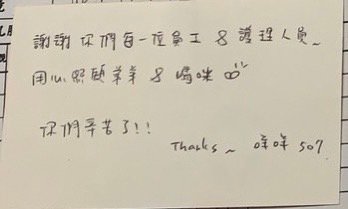 謝謝你們每一位員工 & 護理人員~
用心照顧弟弟 & 媽咪
你們辛苦了!!
Thanks~ 咩咩 507